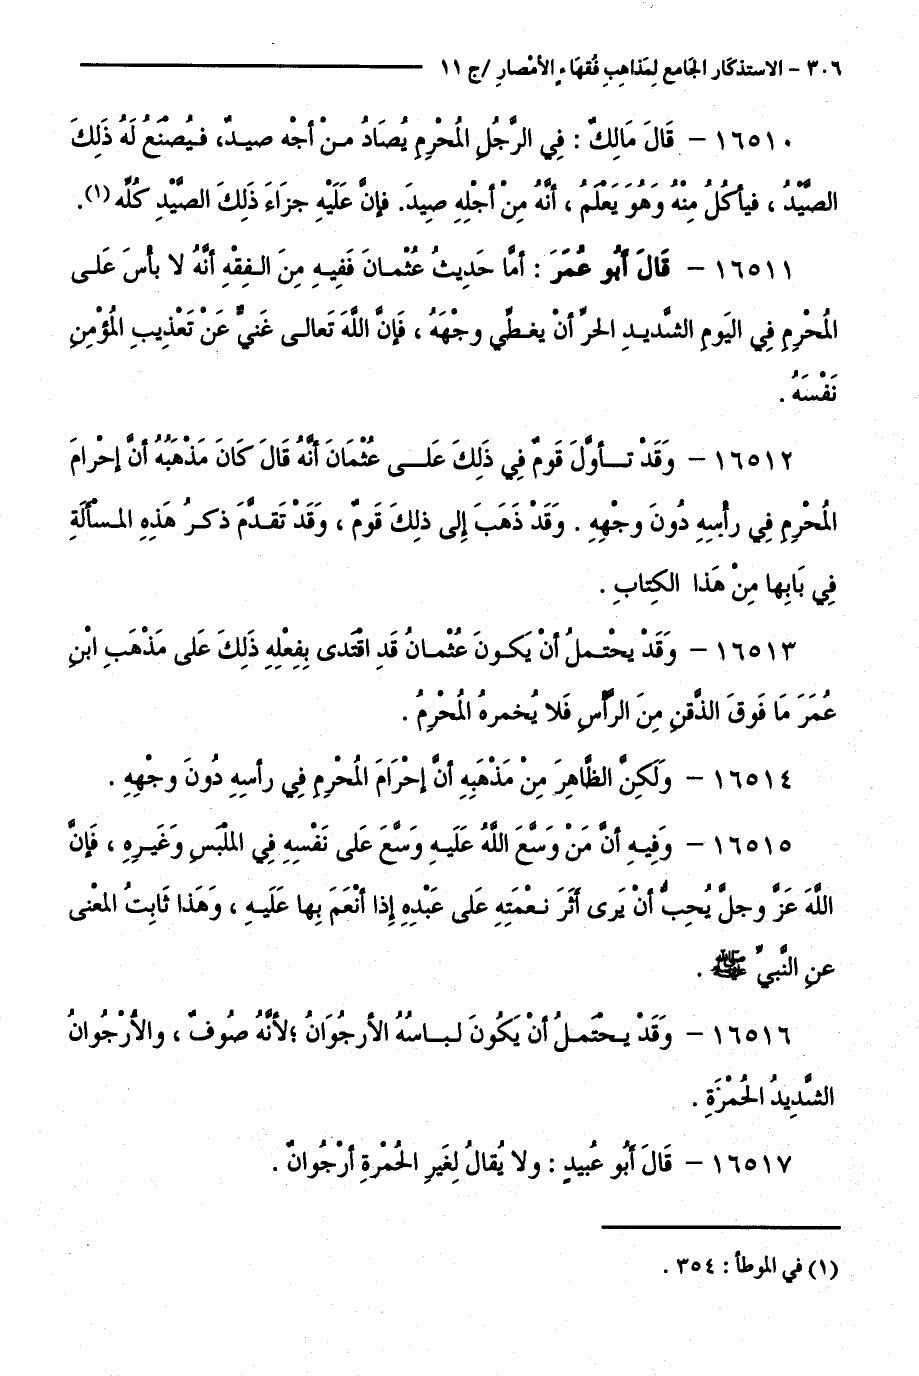 ٣٠٦ – الاستذكار الجامع لِمَذاهِبِ فُقهَاءِ الأمْصارِ /ج ١١
١٦٥١٠ – قَالَ مَالِكٌ : فِي الرَّجُلِ المُحْرِمِ يُصَادُ مـنْ أجْه صيـدٌ، فـيُصْنَعُ لَهُ ذَلِكَ
الصَّيْدُ ، فيأكُلُ مِنْهُ وَهُوَ يَعْلَمُ ، أنَّهُ مِنْ أجْلِهِ صِيدَ. فإنَّ عَلَيْهِ جزَاءَ ذَلِكَ الصَّيْدِ كُلِّه (١).
١٦٥١١ – قَالَ أَبُو عُمَرَ : أمَّا حَدِيثُ عُثْمـانَ فَفِيـهِ مِنَ الـفِقْهِ أنَّهُ لا بأسَ عَلـى
المُحْرِمِ فِي اليَومِ الشَّديـدِ الحرِّ أنْ يغـطِّي وجْهَهُ ، فَإنَّ اللَّهَ تَعالـى غَنيٌّ عَنْ تَعْذِيبِ المُؤْمِنِ
نَفْسَهُ .
١٦٥١٢ – وَقَدْ تــأوَّلَ قَومٌ فِي ذَلِكَ عَلــى عُثْمَانَ أنَّهُ قَالَ كَانَ مَذْهَبُهُ أنَّ إحْرامَ
المُحْرِمِ فِي رأسِهِ دُونَ وجْهِهِ . وَقَدْ ذَهَبَ إلى ذلِكَ قَومٌ ، وَقَدْ تَقَـدَّمَ ذكـرُ هَذِهِ المـسألَةِ
فِي بَابِها مِنْ هَذا الكِتابِ .
١٦٥١٣ – وَقَدْ يحْتـملُ أنْ يَكـونَ عُثْمـانُ قَدِ اقْتَدى بِفِعْلِهِ ذَلِكَ عَلى مَذْهَبِ ابْنِ
عُمَرَ مَا فَوقَ الذَّقنِ مِنَ الرَّأسِ فَلا يُخمرهُ المُحْرِمُ .
١٦٥١٤ – وَلَكِنَّ الظَّاهِرَ مِنْ مَذْهَبِهِ أنَّ إحْرَامَ المُحْرِمِ فِي رأسِهِ دُونَ وجْهِهِ .
١٦٥١٥ – وَفِيهِ أنَّ مَنْ وَسَّعَ اللَّهُ عَلَيهِ وَسَّعَ عَلى نَفْسِهِ فِي الملْبَسِ وَغَيـرِهِ ، فَإنَّ
اللَّهَ عَزَّ وجلَّ يُحِبُّ أنْ يَرى أثَرَ نـعْمَتِهِ عَلى عَبْدِهِ إذا أنْعَمَ بِها عَلَيـهِ ، وَهَذا ثَابِتُ المعْنى
عنِ النَّبيِّ ﷺ .
١٦٥١٦ – وَقَدْ يـحتَمـلُ أنْ يَكُونَ لبـاسُهُ الأرجُوَانُ ؛لأنَّهُ صُوفٌ ، والأرْجُوانُ
الشَّدِيدُ الحُمْرَةِ .
١٦٥١٧ – قَالَ أبُو عُبيدٍ : ولا يُقالُ لِغَيرِ الحُمْرةِ أرْجُوانٌ .
(١) في الموطأ : ٣٥٤ .